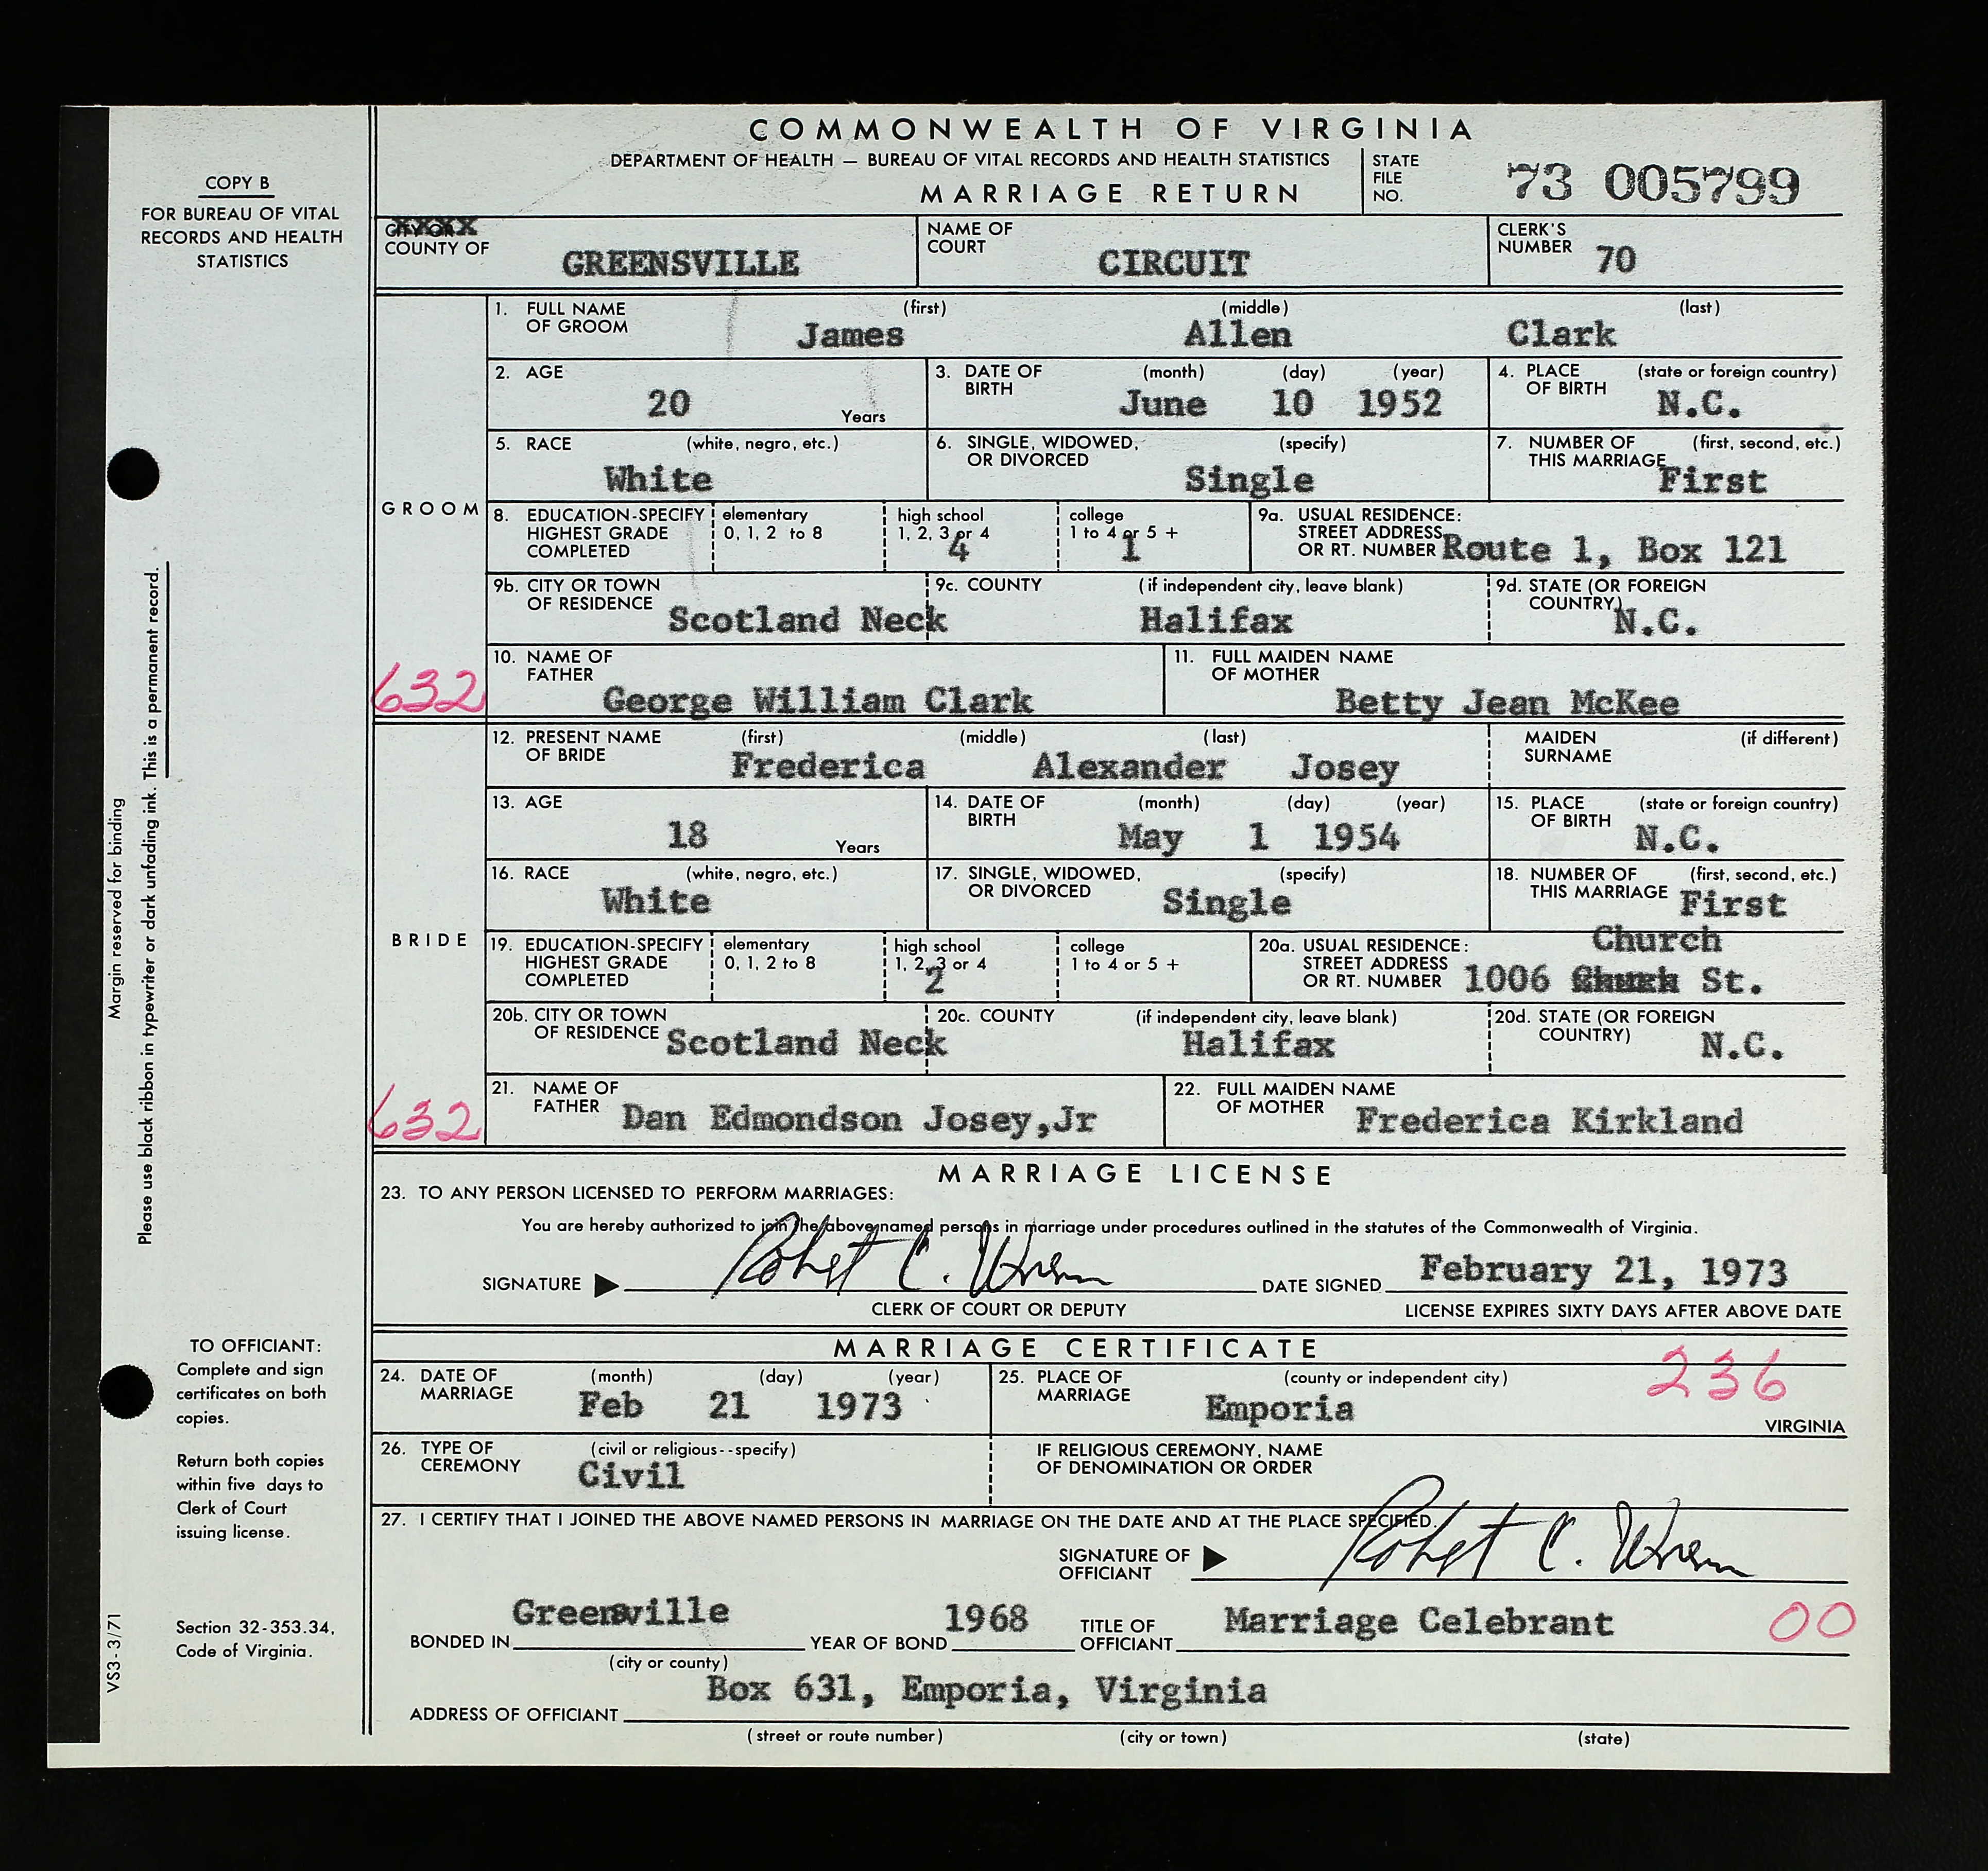 COMMONWEALTH OF VIRGINIA
DEPARTMENT OF HEALTH — BUREAU OF VITAL RECORDS AND HEALTH STATISTICS
MARRIAGE RETURN
STATE FILE NO. 73 005799
COPY B
FOR BUREAU OF VITAL
RECORDS AND HEALTH
STATISTICS
CITY OR XXXX
COUNTY OF GREENSVILLE
NAME OF COURT CIRCUIT
CLERK'S NUMBER 70
GROOM
1. FULL NAME OF GROOM (first) James (middle) Allen (last) Clark
2. AGE 20 Years
3. DATE OF BIRTH (month) June (day) 10 (year) 1952
4. PLACE OF BIRTH (state or foreign country) N.C.
5. RACE (white, negro, etc.) White
6. SINGLE, WIDOWED, OR DIVORCED (specify) Single
7. NUMBER OF THIS MARRIAGE (first, second, etc.) First
8. EDUCATION-SPECIFY HIGHEST GRADE COMPLETED elementary 0, 1, 2 to 8 high school 1, 2, 3 or 4 4 college 1 to 4 or 5 + 1
9a. USUAL RESIDENCE: STREET ADDRESS OR RT. NUMBER Route 1, Box 121
9b. CITY OR TOWN OF RESIDENCE Scotland Neck
9c. COUNTY (if independent city, leave blank) Halifax
9d. STATE (OR FOREIGN COUNTRY) N.C.
632
10. NAME OF FATHER George William Clark
11. FULL MAIDEN NAME OF MOTHER Betty Jean McKee
BRIDE
12. PRESENT NAME OF BRIDE (first) Frederica (middle) Alexander (last) Josey
MAIDEN SURNAME (if different)
13. AGE 18 Years
14. DATE OF BIRTH (month) May (day) 1 (year) 1954
15. PLACE OF BIRTH (state or foreign country) N.C.
16. RACE (white, negro, etc.) White
17. SINGLE, WIDOWED, OR DIVORCED (specify) Single
18. NUMBER OF THIS MARRIAGE (first, second, etc.) First
19. EDUCATION-SPECIFY HIGHEST GRADE COMPLETED elementary 0, 1, 2 to 8 high school 1, 2, 3 or 4 2 college 1 to 4 or 5 +
20a. USUAL RESIDENCE: STREET ADDRESS OR RT. NUMBER
Church
1006 St.
20b. CITY OR TOWN OF RESIDENCE Scotland Neck
20c. COUNTY (if independent city, leave blank) Halifax
20d. STATE (OR FOREIGN COUNTRY) N.C.
632
21. NAME OF FATHER Dan Edmondson Josey,Jr
22. FULL MAIDEN NAME OF MOTHER Frederica Kirkland
MARRIAGE LICENSE
23. TO ANY PERSON LICENSED TO PERFORM MARRIAGES:
You are hereby authorized to join the above named persons in marriage under procedures outlined in the statutes of the Commonwealth of Virginia.
SIGNATURE Robert C. Wrenn DATE SIGNED February 21, 1973
CLERK OF COURT OR DEPUTY LICENSE EXPIRES SIXTY DAYS AFTER ABOVE DATE
MARRIAGE CERTIFICATE
24. DATE OF MARRIAGE (month) Feb (day) 21 (year) 1973
25. PLACE OF MARRIAGE (county or independent city) Emporia 236 VIRGINIA
26. TYPE OF CEREMONY (civil or religious--specify) Civil
IF RELIGIOUS CEREMONY, NAME OF DENOMINATION OR ORDER
27. I CERTIFY THAT I JOINED THE ABOVE NAMED PERSONS IN MARRIAGE ON THE DATE AND AT THE PLACE SPECIFIED.
SIGNATURE OF OFFICIANT Robert C. Wrenn
BONDED IN Greensville YEAR OF BOND 1968 TITLE OF OFFICIANT Marriage Celebrant 00
(city or county)
ADDRESS OF OFFICIANT Box 631, Emporia, Virginia
(street or route number) (city or town) (state)
Margin reserved for binding
Please use black ribbon in typewriter or dark unfading ink. This is a permanent record.
TO OFFICIANT:
Complete and sign
certificates on both
copies.
Return both copies
within five days to
Clerk of Court
issuing license.
Section 32-353.34,
Code of Virginia.
VS3-3/71